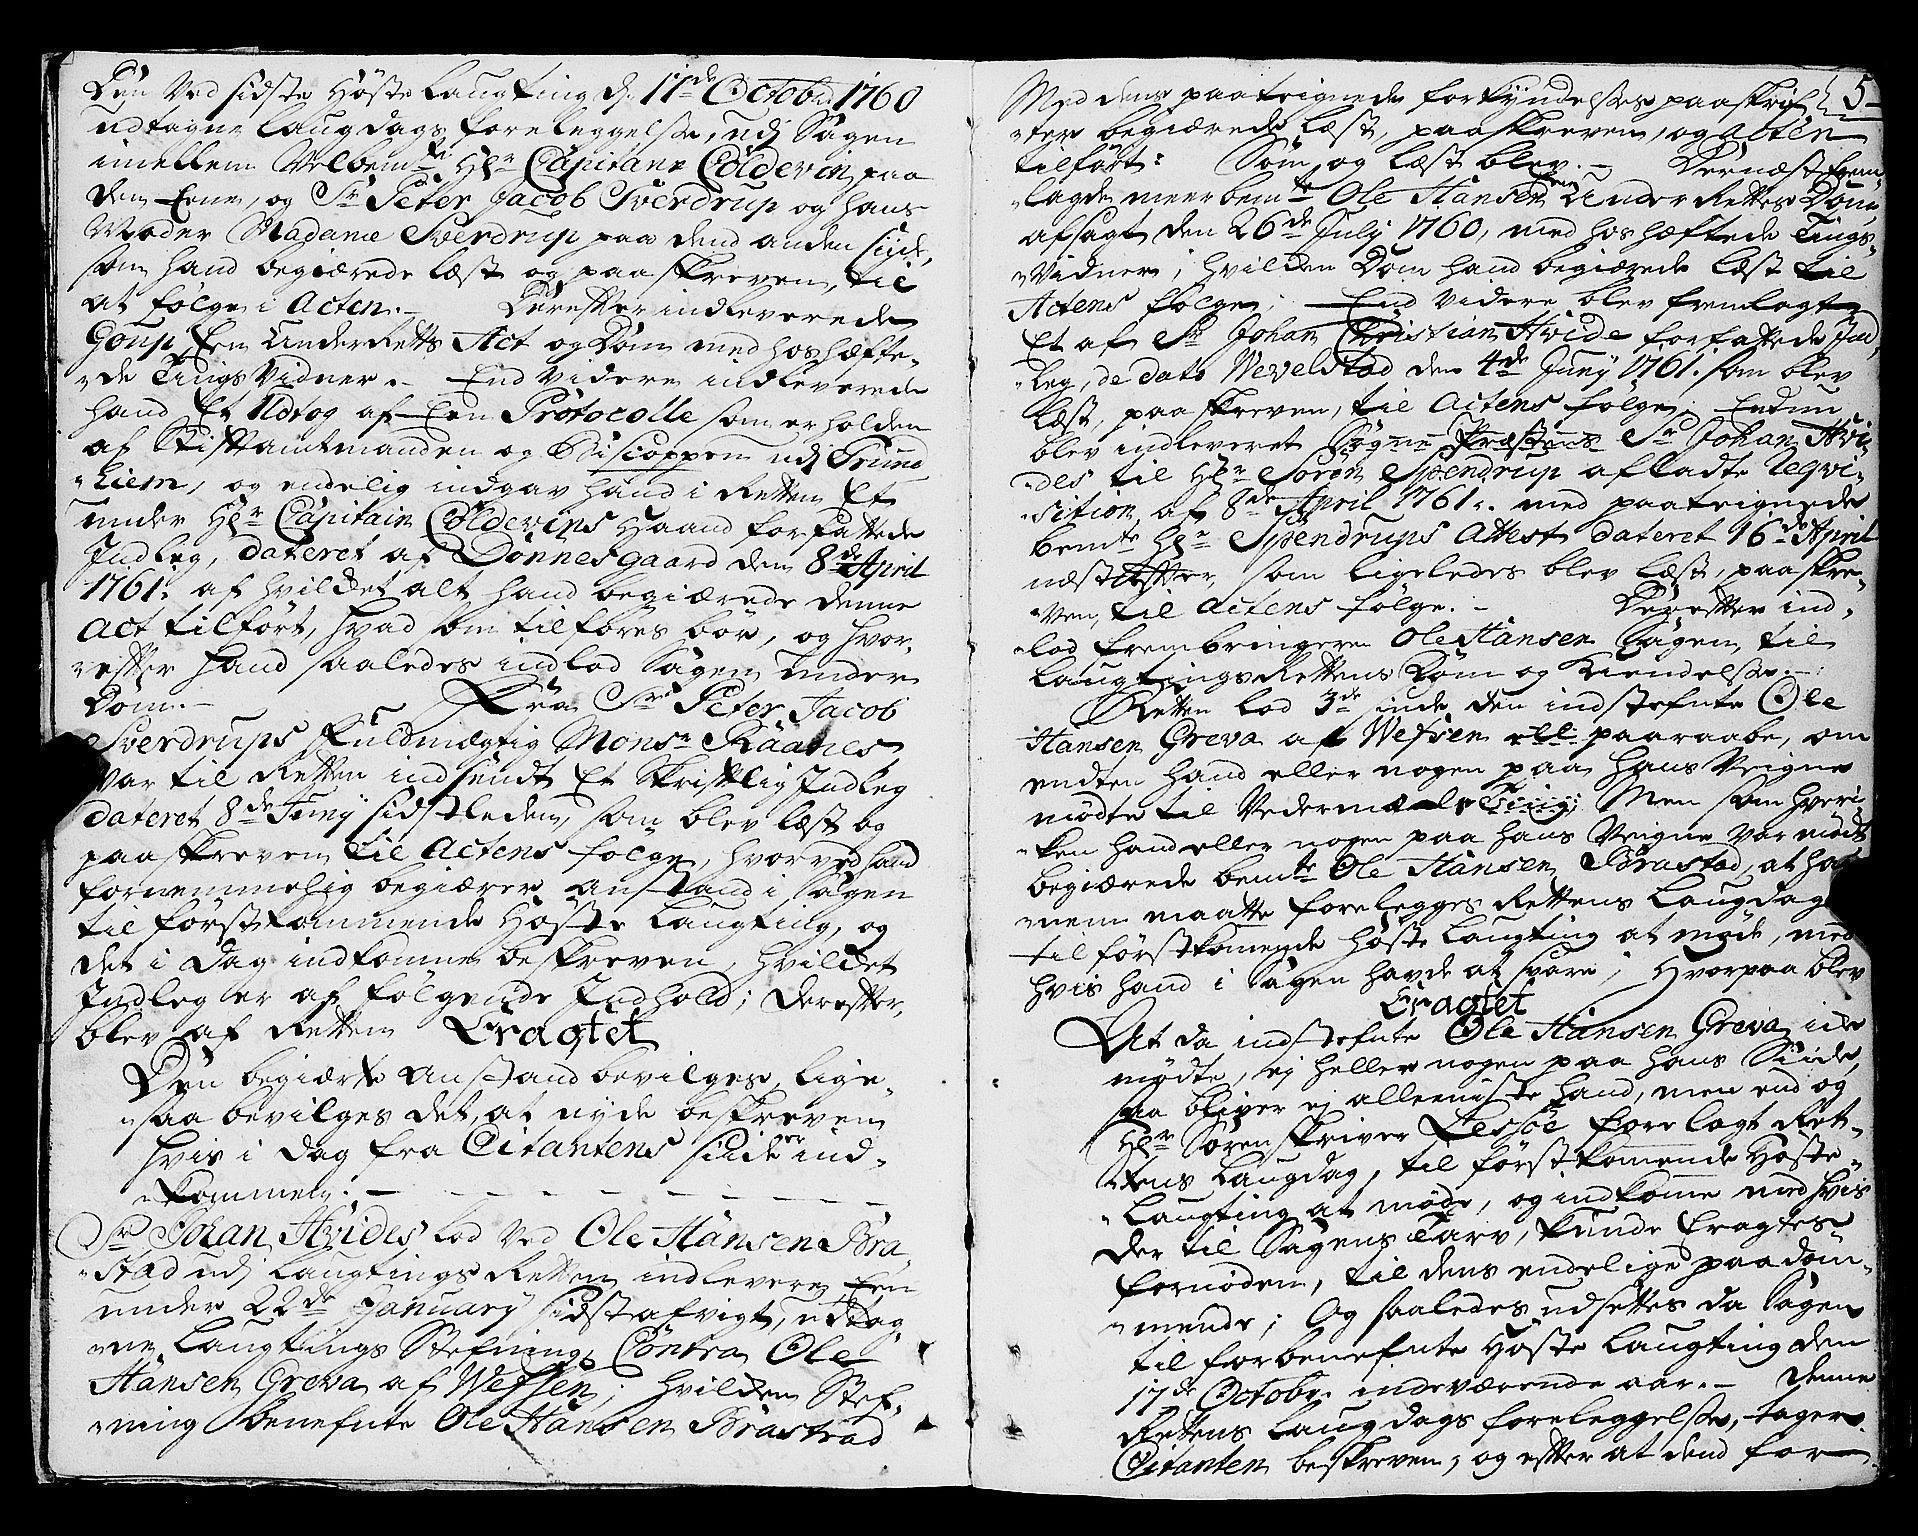 Den Ved sidste Høste Laugting d. 17de Octobr. 1760
udtagne Laugdags foreleggelse, udj Sagen
imellem Velbemte Hr Capitaine Coldevin paa
den Eene, og Sr Peter Jacob Sverdrup og hans
Moder Madame Sverdrup paa dend anden Siide,
som hand begiærede læst og paaskreven, til
at følge i Acten. - Derefter indleverede
Goup Een UnderRetts Act og Dom med hoshæfte-
-de TingsVidner. - End Videre indleverede
hand Et Udtog af Een Protocolle som er holden
af Stiftamtmanden og Biscoppen udj Trund-
-hiem, og endelig indgav hand i Retten Et
under Hr Capitain Coldevins Haand forfattede
Indleg, dateret af Dønnesgaard den 8de April
1761. af hvildet alt hand begiærede denne
Act tilført, hvad som tilføres bør, og hvor-
-efter hand saaledes indlod Sagen under
Dom. - Fra Sr Peter Jacob
Sverdrups fuldmægtig Monsr Raanes
var til Retten indsendt Et Skriftlig Indleg
dateret 8de Juny sidstleden, som blev læst og
paaskreven til Actens følge, hvorved hand
fornemmelig begiærer anstand i Sagen
til førstkommende Høste Laugting, og
det i Dag indkomne beskreven, hvildet
Indleg er af følgende Indhold; derefter,
blev af Retten Eragtet
Den begiærte anstand bevilges, lige-
-saa bevilges det, at nyde beskreven
hvis i Dag fra Citantens Siide er ind-
-kommen. -
Sr Johan Hvides lod ved Ole Hansen Bra-
-stad udj LaugtingsRetten indlevere Een
under 22de January sidst afvigt, udtag-
-ne Laugtings Stefning, Contra Ole
Hansen Greva af Wefsen; hvilden Stef-
-ning benefnte Ole Hansen Brastad
5
Med dens paateignede forkyndelses paaskrif-
-ter begiærede læst, paaskreven, og acten
tilført: Som og læst blev. - Dernæst frem-
-lagde meerbemte Ole Hansen Een UnderRettes Dom
afsagt den 26de July 1760, med hoshæftede Tings-
-Vidner, hvilden Dom hand begiærede læst til
Actens følge; End videre blev fremlagt
Et af Sr Johan Christian Hvide forfattede Ind-
-leg, de dato Wevelstad den 4de Juny 1761. som blev
læst, paaskreven, til Actens følge; Endnu
blev indleveret Sogne Præstens Sr Johan Hvi-
-des til Hr Søren Spendrup afladte Reqvi-
-sition af 8de April 1761. med paateignede
bemte Hr Spendrups Attest dateret 16de April
næst efter, som ligeledes blev læst, paaskre-
-ven, til Actens følge. - Derefter ind-
-lod frembringeren Ole Hansen Sagen, til
LaugtingsRettens Dom og Kiendelse. -
Retten lod 3de sinde den indstefnte Ole
Hansen Greva af Wefsen paaraabe, om
endten hand eller nogen paa hans Veigne
mødte til Vedermæle Ting; Men som hveri-
-ken hand eller nogen paa hans Veigne var mødt
begiærede bemte Ole Hansen Brastad, at ha-
-nem maatte forelegges Rettens Laugdag
til førstkomende Høste Laugting at møde, med
hvis hand i Sagen havde at svare; Hvorpaa blev
Eragtet
At da indstefnte Ole Hansen Greva icke
mødte, ej heller nogen paa hans Siide,
saa bliver ej alleeniste hand, men end og
Hr Sørenskriver Lessøe forelagt Ret-
-tens Laugdag, til førstkomende Høste-
-Laugting at møde, og indkome med hvis
der til Sagens Tarv, kunde Eragtes
fornøden, til dens endelige paadøm-
-mende; Og saaledes udsettes da Sagen
til forbenefnte Høste Laugting den
17de Octobr. indeværende aar. - Denne
Rettens Laugdags foreleggelse, tager
Citanten beskreven, og efter at dend for-